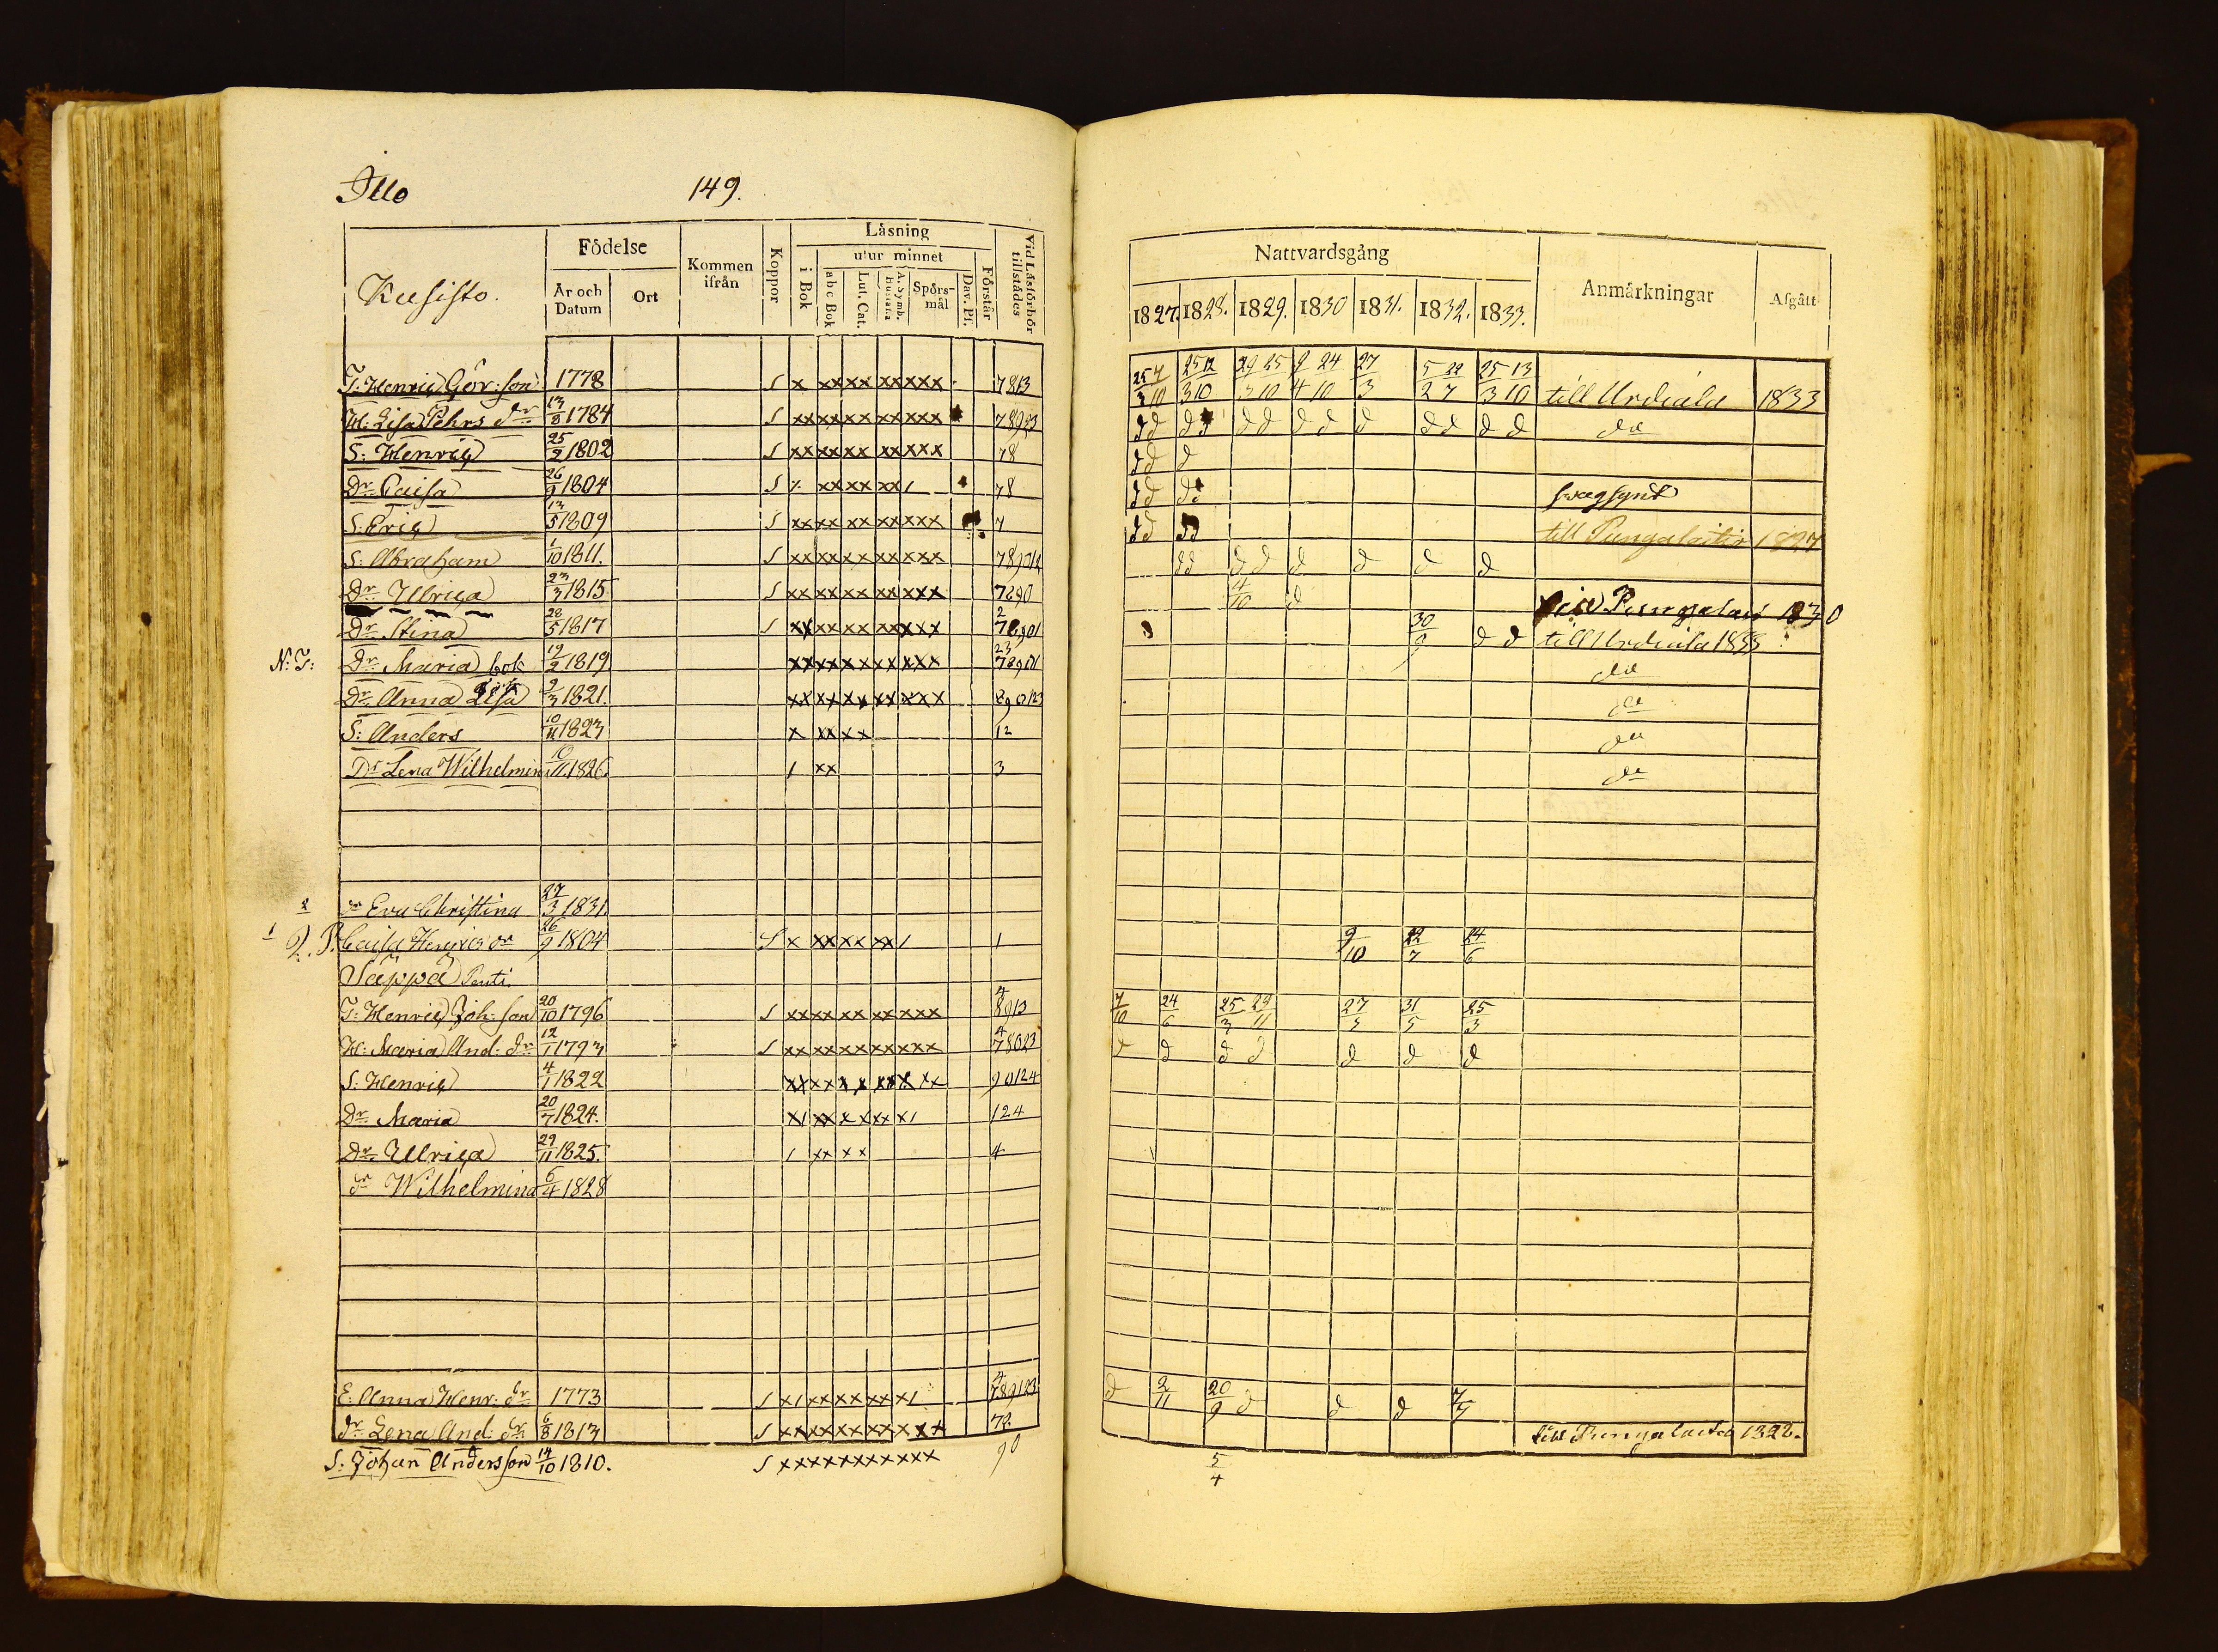 Illo 149.
Kusisto.
Födelse
År och Datum
Ort
Kommen ifrån
Koppor
Läsning
i Bok
utur minnet
a b c Bok
Lut. Cat.
A. Symb. Hustafla
Spörs-mål
Dav. Ps.
Förstår
Vid Läsförhör tillstädes
Nattvardsgång
1827. 1828. 1829. 1830 1831. 1832. 1833.
Anmärkningar
Afgått
T: Henric Gör: son 1778 S x xx xx xx xxx 7813 25/3 7/10 25/3 12/10 29/3 25/10 9/4 24/10 27/3 5/2 22/7 25/3 13/10 till Urdiala 1833
H: Lisa Pehrs dr 13/8 1784 S xx xx xx xx xxx d d d d d d d d d d d d d do
S: Henric 25/2 1802 S xx xx xx xx xxx 78 d d d
Dr Caisa 26/9 1804 S x xx xx xx / 78 d d d d swagsynt
S: Eric 13/5 1809 S xx xx xx xx xxx 7 d d d d till Pungalaitio 1827
S: Abraham 1/10 1811. S xx xx xx xx xxx d d d d d d d d
Dr Ulrica 23/3 1815 S xx xx xx xx xxx 7890 4/10 d till Pungalait 1830
Dr Stina 28/5 1817 S xx xx xx xx xxx 2 78901 30/9 d d till Urdiala 1833
N: T: Dr Maria bok 19/2 1819 xx xx xx xx xxx 23 do
Dr Anna Lisa 9/3 1821. xx xx xx xx xxx 890123 do
S: Anders 1823 x xx xx 12 do
Dr Lena Wilhelmin 10/11 1826. / xx 3 do
2 dr Eva Christina 27/3 1831.
1 Caisa Henrics dr 26/9 1804 S x xx xx xx / 1 9/10 22/7 24/6
Säppä Penti.
T: Henric Joh: son 20/10 1796 S xx xx xx xx xxx 4 8913 7/10 24/6 25/3 29/11 27/3 31/5 25/3
H: Maria And: dr 12/1 1793 S xx xx xx xx xxx 4 78023 d d d d d d d
S: Henric 4/1 1822 xx xx xx xx x xx 90124
Dr Maria 20/7 1824. x/ xx xx xx x/ 124
Dr Ulrica 29/11 1825. / xx xx 4
dr Wilhelmina 6/4 1828
E: Anna Henr: dr 1773 S x/ xx xx xx x/ 4 789123 d 2/11 20/9 d d d 7/7
dr Lena And: dr 6/8 1813 S xx xx xx xx xxx 78 till Pungalaitio 1828.
S: Johan Andersson 14/10 1810. S xxxxxxxxxxx 90 5/4